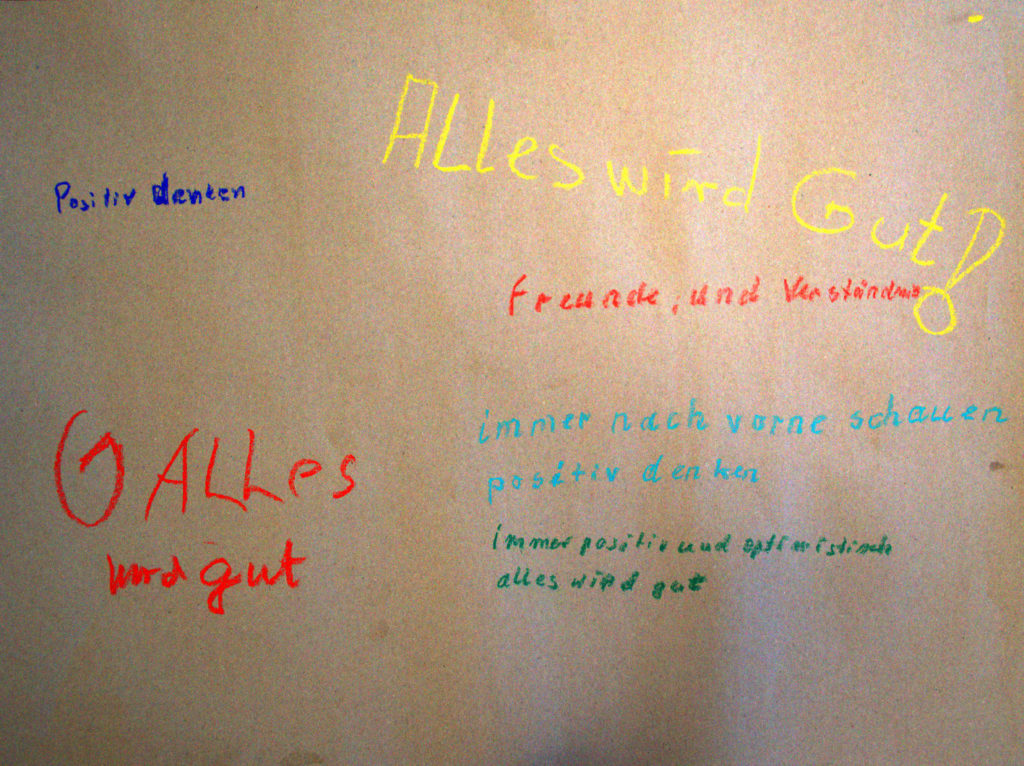 Alles wird Gut!
Positiv denken
Freunde, und Verständnis
immer nach vorne schauen
positiv denken
ALLes
wird gut
immer positiv und optimistisch
alles wird gut